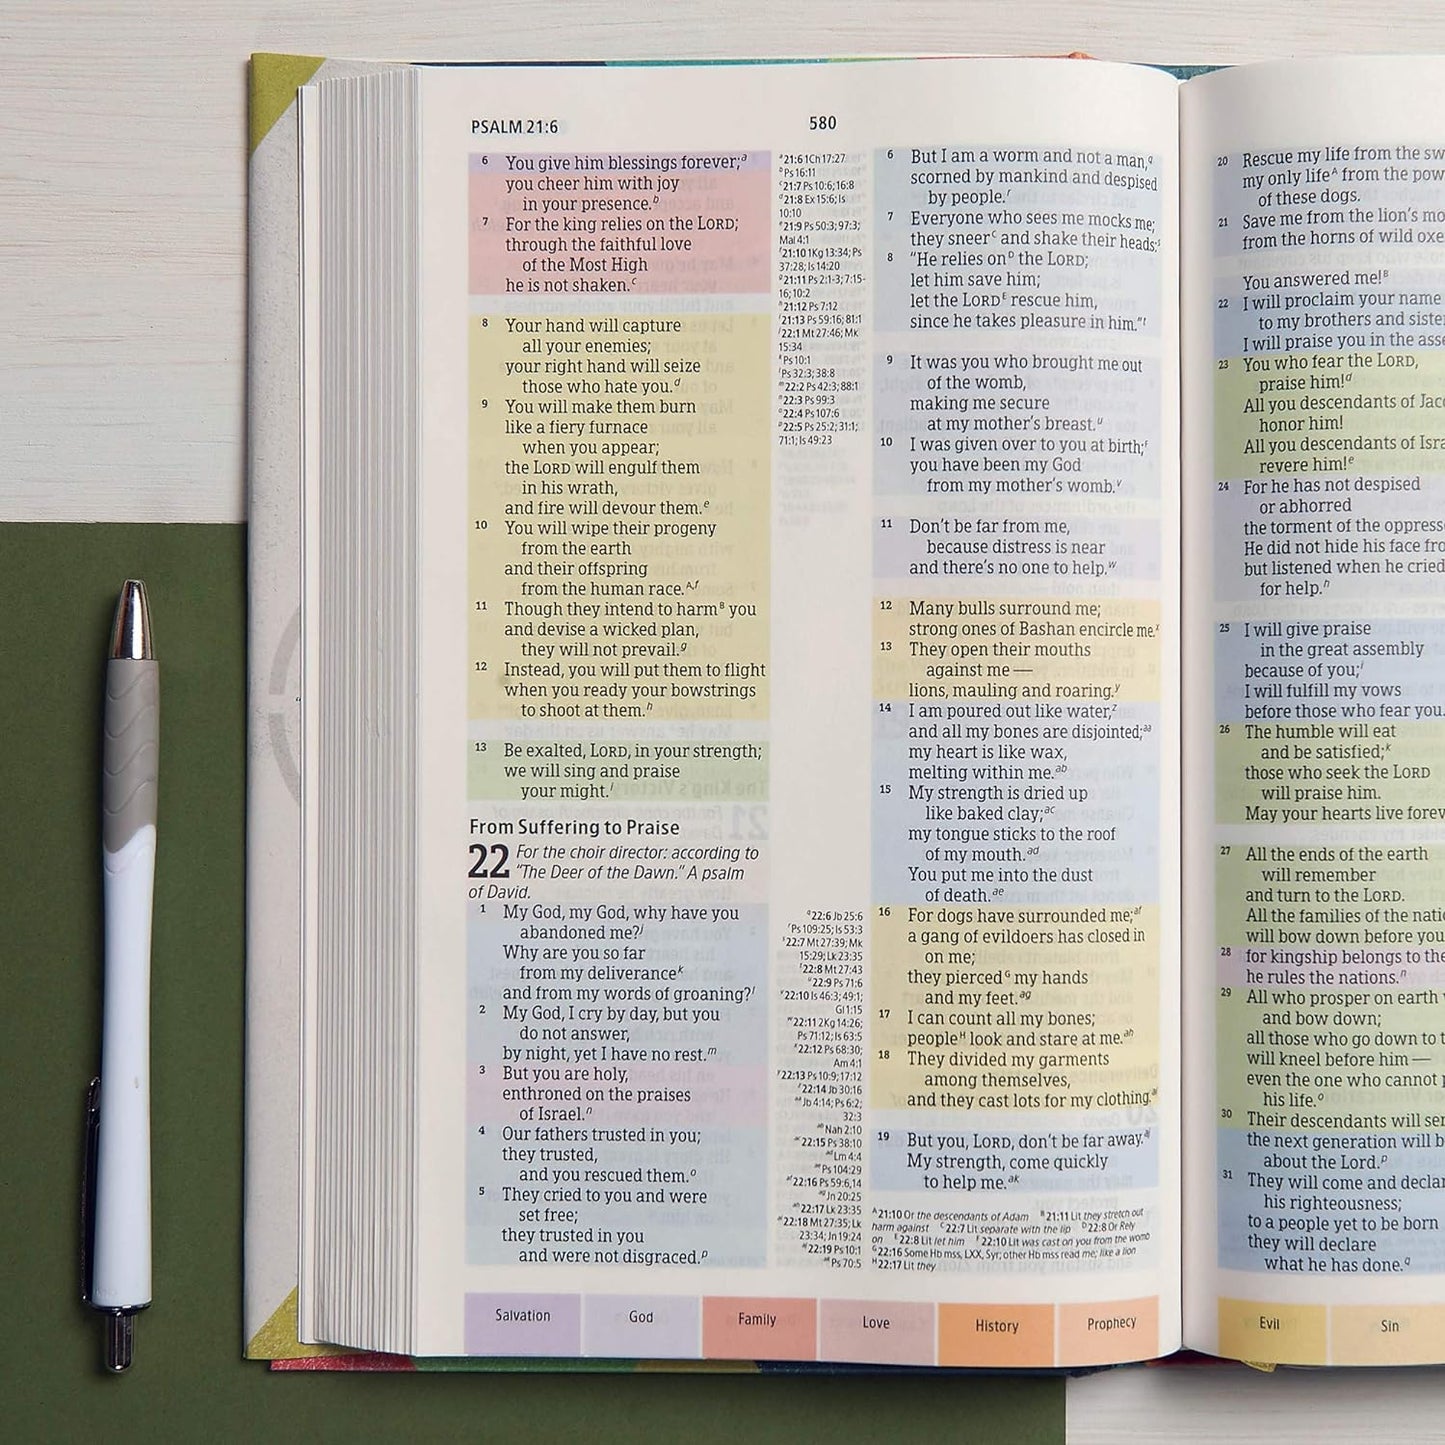 PSALM 21:6
580
6 You give him blessings forever;a
you cheer him with joy
in your presence.b
7 For the king relies on the LORD;
through the faithful love
of the Most High
he is not shaken.c
8 Your hand will capture
all your enemies;
your right hand will seize
those who hate you.d
9 You will make them burn
like a fiery furnace
when you appear;
the LORD will engulf them
in his wrath,
and fire will devour them.e
10 You will wipe their progeny
from the earth
and their offspring
from the human race.A,f
11 Though they intend to harmB you
and devise a wicked plan,
they will not prevail.g
12 Instead, you will put them to flight
when you ready your bowstrings
to shoot at them.h
13 Be exalted, LORD, in your strength;
we will sing and praise
your might.i
From Suffering to Praise
22 For the choir director: according to
"The Deer of the Dawn." A psalm
of David.
1 My God, my God, why have you
abandoned me?j
Why are you so far
from my deliverancek
and from my words of groaning?l
2 My God, I cry by day, but you
do not answer,
by night, yet I have no rest.m
3 But you are holy,
enthroned on the praises
of Israel.n
4 Our fathers trusted in you;
they trusted,
and you rescued them.o
5 They cried to you and were
set free;
they trusted in you
and were not disgraced.p
a21:6 1Ch 17:27
bPs 16:11
c21:7 Ps 10:6; 16:8
d21:8 Ex 15:6; Is
10:10
e21:9 Ps 50:3; 97:3;
Mal 4:1
f21:10 1Kg 13:34; Ps
37:28; Is 14:20
g21:11 Ps 2:1-3; 7:15-
16; 10:2
h21:12 Ps 7:12
i21:13 Ps 59:16; 81:1
j22:1 Mt 27:46; Mk
15:34
kPs 10:1
lPs 32:3; 38:8
m22:2 Ps 42:3; 88:1
n22:3 Ps 99:3
o22:4 Ps 107:6
p22:5 Ps 25:2; 31:1;
71:1; Is 49:23
q22:6 Jb 25:6
rPs 109:25; Is 53:3
s22:7 Mt 27:39; Mk
15:29; Lk 23:35
t22:8 Mt 27:43
u22:9 Ps 71:6
v22:10 Is 46:3; 49:1;
Gl 1:15
w22:11 2Kg 14:26;
Ps 71:12; Is 63:5
x22:12 Ps 68:30;
Am 4:1
y22:13 Ps 10:9; 17:12
z22:14 Jb 30:16
aaJb 4:14; Ps 6:2;
32:3
abNah 2:10
ac22:15 Ps 38:10
adLm 4:4
aePs 104:29
af22:16 Ps 59:6,14
agJn 20:25
ah22:17 Lk 23:35
ai22:18 Mt 27:35; Lk
23:34; Jn 19:24
aj22:19 Ps 10:1
akPs 70:5
6 But I am a worm and not a man,q
scorned by mankind and despised
by people.r
7 Everyone who sees me mocks me;
they sneerC and shake their heads:s
8 "He relies onD the LORD;
let him save him;
let the LORDE rescue him,
since he takes pleasure in him."t
9 It was you who brought me out
of the womb,
making me secure
at my mother's breast.u
10 I was given over to you at birth;F
you have been my God
from my mother's womb.v
11 Don't be far from me,
because distress is near
and there's no one to help.w
12 Many bulls surround me;
strong ones of Bashan encircle me.x
13 They open their mouths
against me —
lions, mauling and roaring.y
14 I am poured out like water,z
and all my bones are disjointed;aa
my heart is like wax,
melting within me.ab
15 My strength is dried up
like baked clay;ac
my tongue sticks to the roof
of my mouth.ad
You put me into the dust
of death.ae
16 For dogs have surrounded me;af
a gang of evildoers has closed in
on me;
they piercedG my hands
and my feet.ag
17 I can count all my bones;
peopleH look and stare at me.ah
18 They divided my garments
among themselves,
and they cast lots for my clothing.ai
19 But you, LORD, don't be far away.aj
My strength, come quickly
to help me.ak
A21:10 Or the descendants of Adam B21:11 Lit they stretch out
harm against C22:7 Lit separate with the lip D22:8 Or Rely
on E22:8 Lit let him F22:10 Lit was cast on you from the womb
G22:16 Some Hb mss, LXX, Syr; other Hb mss read me; like a lion
H22:17 Lit they
Salvation God Family Love History Prophecy
20 Rescue my life from the
my only lifeA from the
of these dogs.
21 Save me from the lion's
from the horns of wild
You answered me!B
22 I will proclaim your name
to my brothers and
I will praise you in the
23 You who fear the LORD,
praise him!d
All you descendants of
honor him!
All you descendants of
revere him!e
24 For he has not despised
or abhorred
the torment of the
He did not hide his face
but listened when he cried
for help.h
25 I will give praise
in the great assembly
because of you;i
I will fulfill my vows
before those who fear you.
26 The humble will eat
and be satisfied;k
those who seek the LORD
will praise him.
May your hearts live
27 All the ends of the earth
will remember
and turn to the LORD.
All the families of the
will bow down before you
28 for kingship belongs to the
he rules the nations.n
29 All who prosper on earth
and bow down;
all those who go down to
will kneel before him —
even the one who cannot
his life.o
30 Their descendants will
the next generation will
about the Lord.p
31 They will come and
his righteousness;
to a people yet to be born
they will declare
what he has done.q
Evil Sin